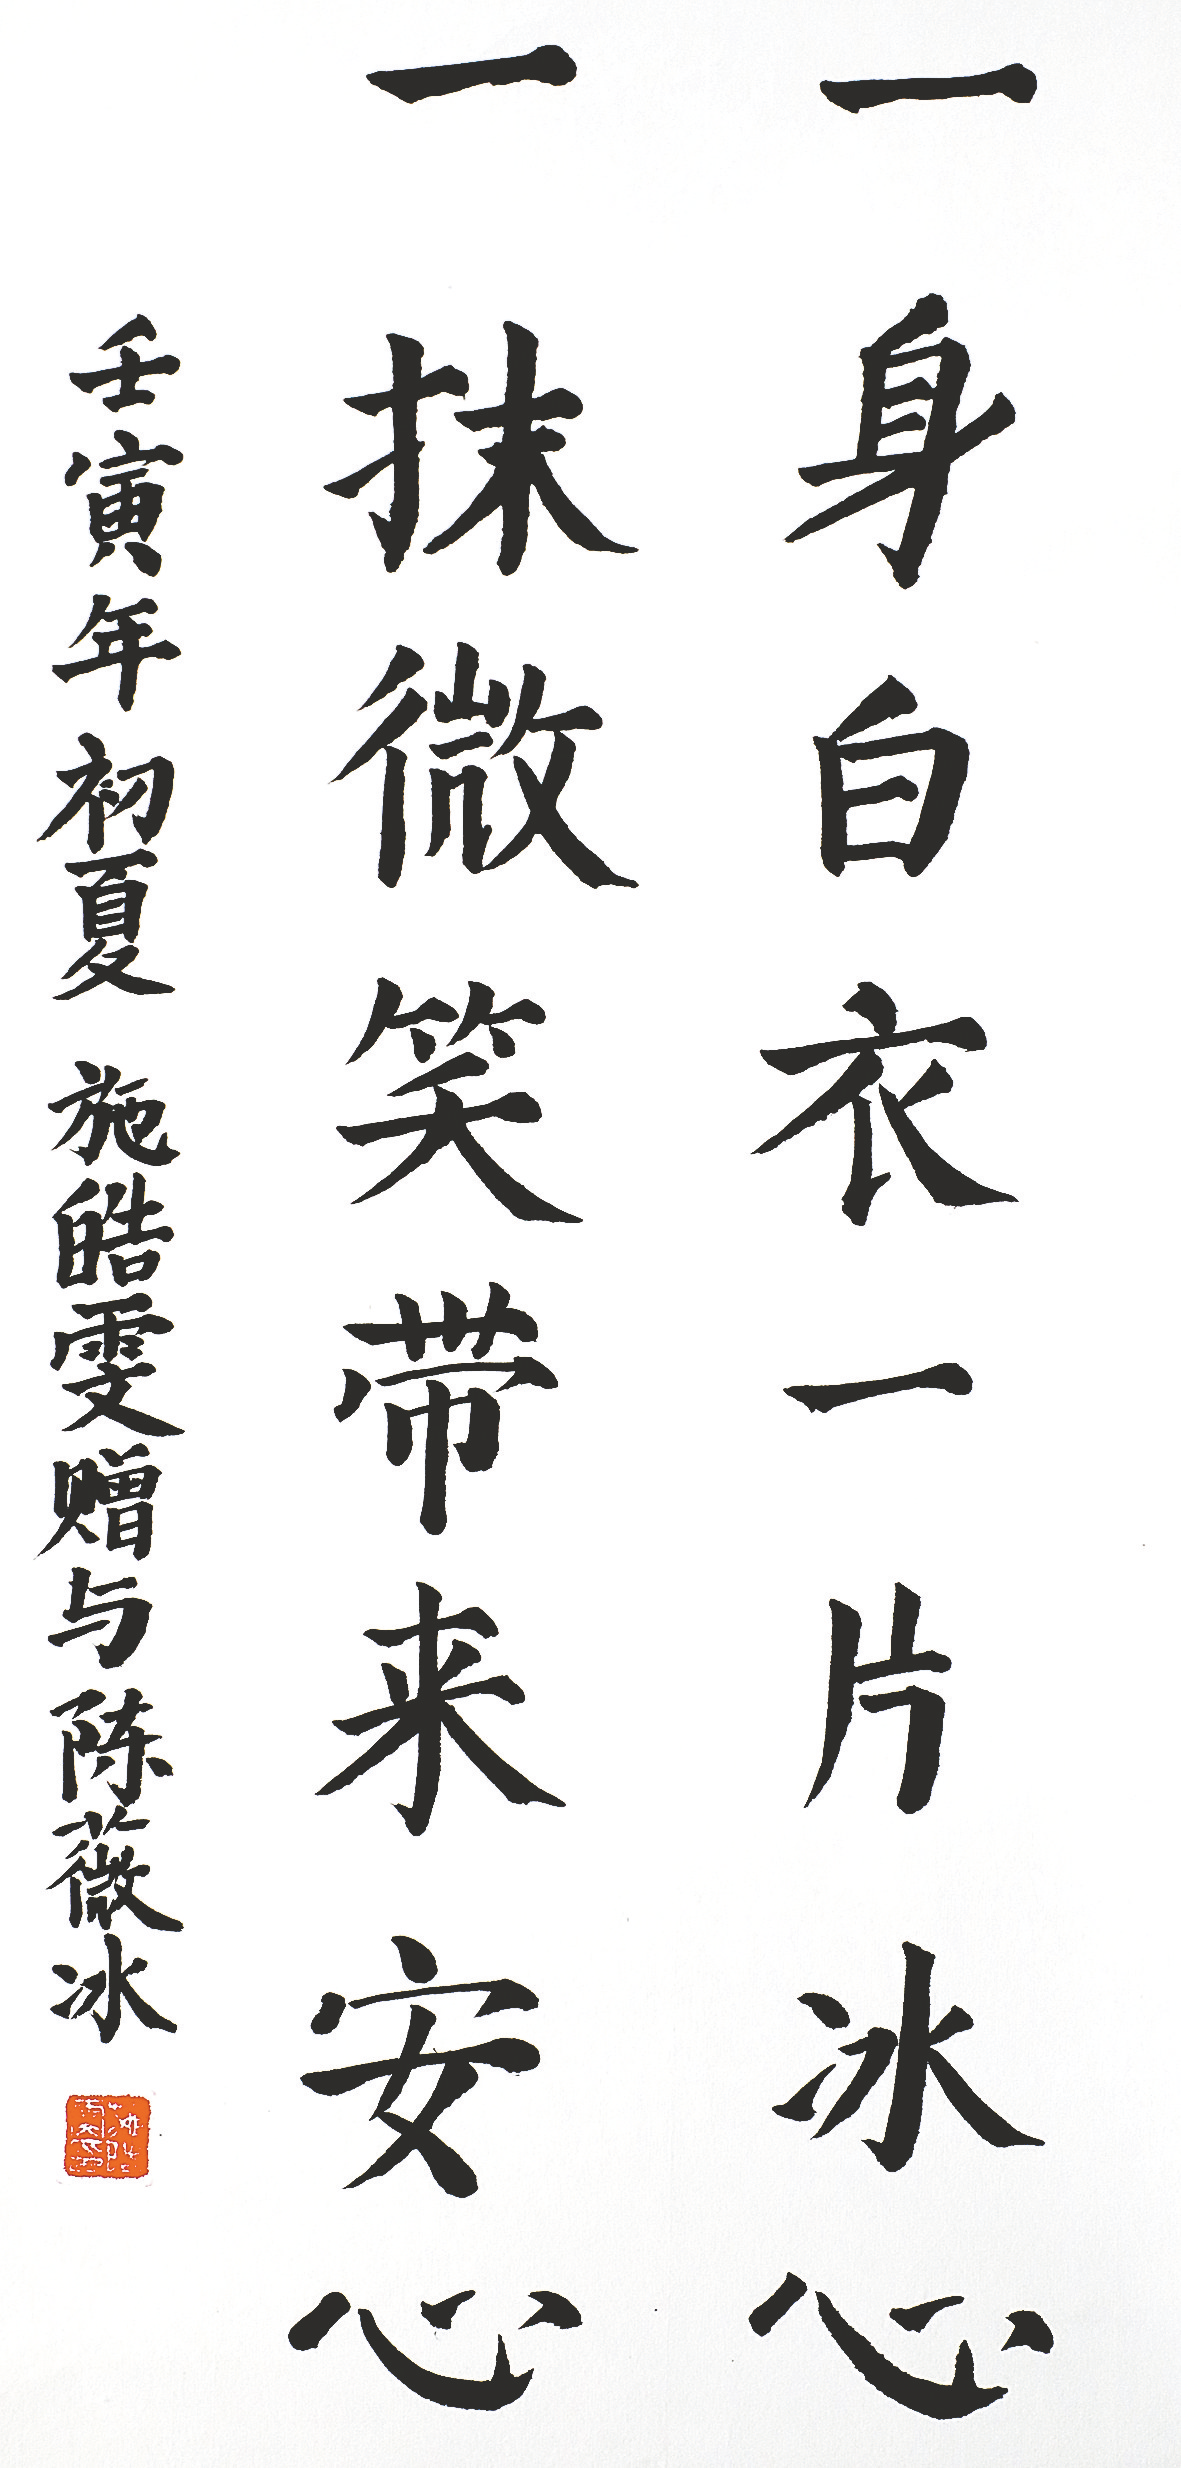 一身白衣一片冰心
一抹微笑带来安心
壬寅年初夏 施皓雯赠与陈薇冰